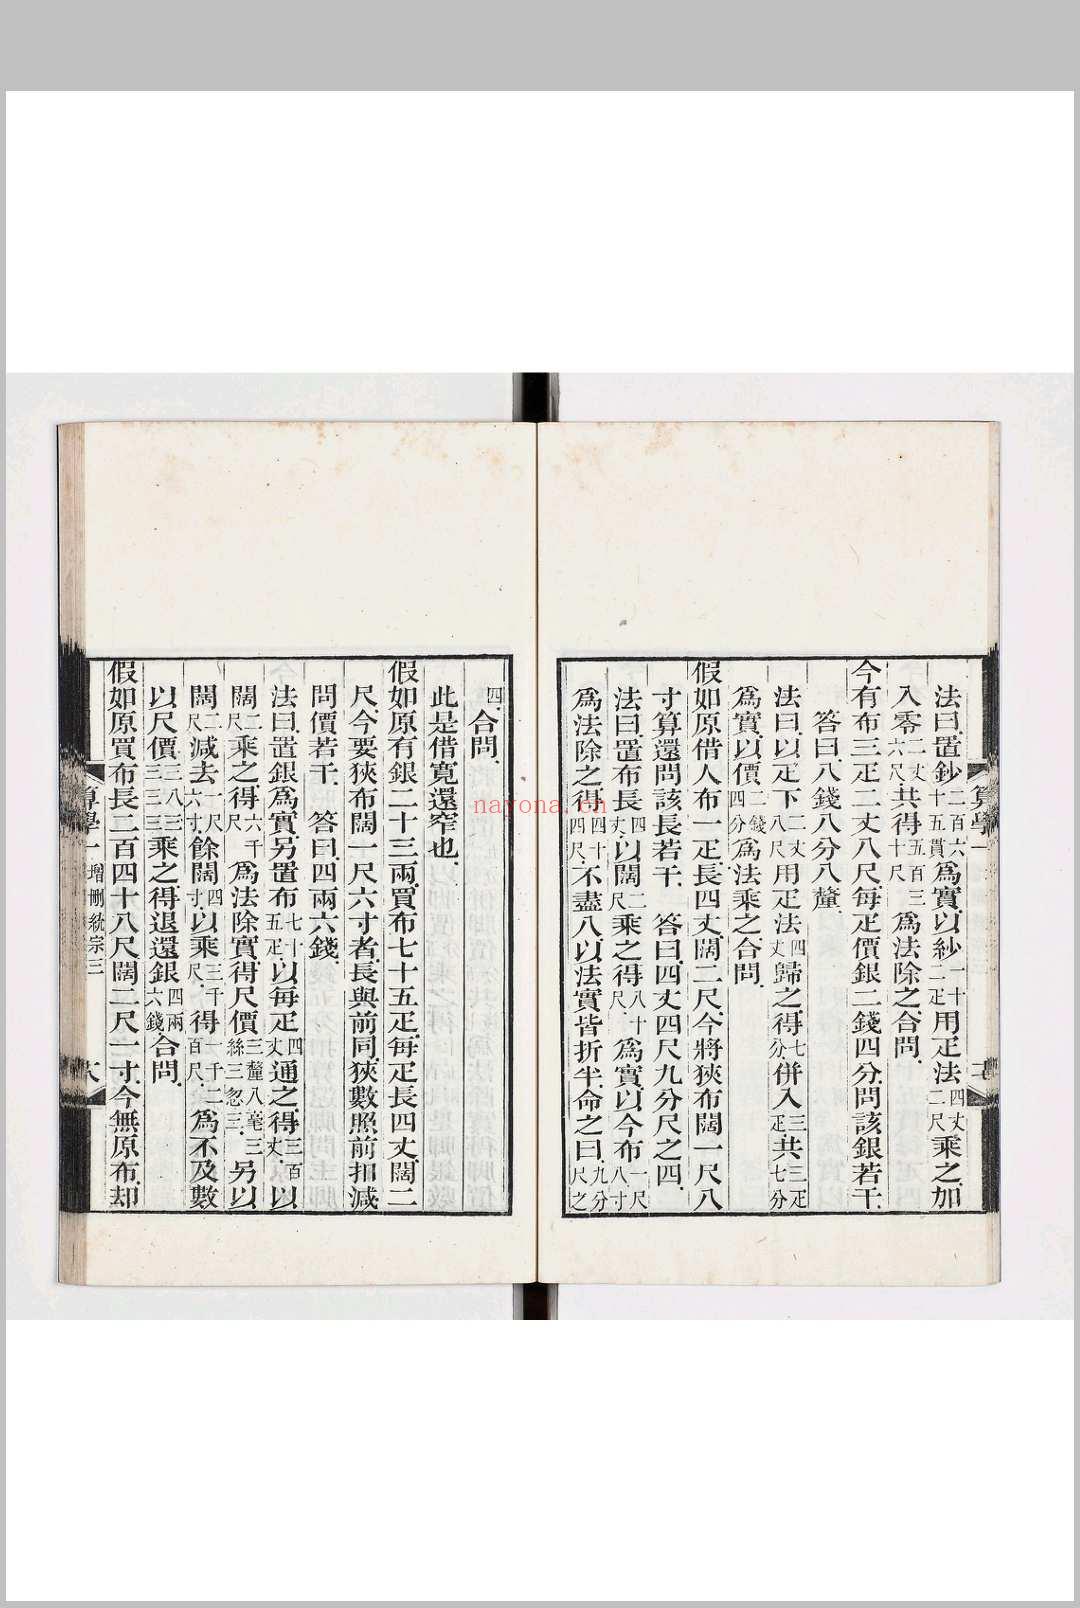 法曰置鈔二百六十五貫爲實以紗一十二疋用疋法四丈二尺乘之加
入零二丈六尺共得五百三十尺爲法除之合問
今有布三疋二丈八尺每疋價銀二錢四分問該銀若干
答曰八錢八分八釐
法曰以疋下二丈八尺用疋法四丈歸之得七分併入三疋共三疋七分
爲實以價二錢四分爲法乘之合問
假如原借人布一疋長四丈闊二尺今將狹布闊一尺八
寸算還問該長若干 答曰四丈四尺九分尺之四
法曰置布長四丈以闊二尺乘之得八十尺爲實以今布一尺八寸
爲法除之得四十四尺不盡八以法實皆折半命之曰九分尺之
四合問
此是借寬還窄也
假如原有銀二十三兩買布七十五疋每疋長四丈闊二
尺今要狹布闊一尺六寸者長與前同狹數照前扣減
問價若干 答曰四兩六錢
法曰置銀爲實另置布七十五疋以每疋四丈通之得三百丈以
闊二尺乘之得六千尺爲法除實得尺價三釐八毫三絲三忽三另以
闊二尺減去一尺六寸餘闊四寸以乘三千尺得一千二百尺爲不及數
以尺價三八三三三三乘之得退還銀四兩六錢合問
假如原買布長二百四十八尺闊二尺一寸今無原布却
算學一 增刪統宗三
nayona.cn